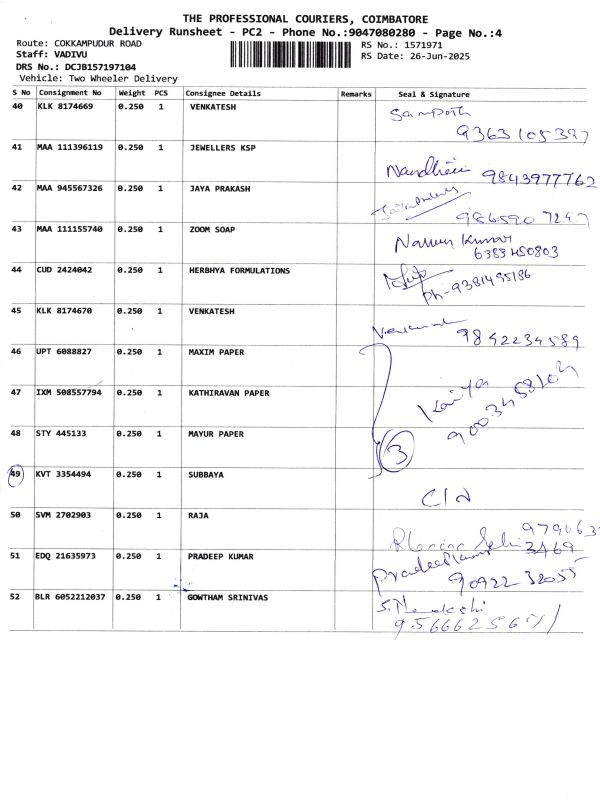 THE PROFESSIONAL COURIERS, COIMBATORE
Delivery Runsheet - PC2 - Phone No.:9047080280 - Page No.:4
Route: COKKAMPUDUR ROAD
RS No.: 1571971
Staff: VADIVU
RS Date: 26-Jun-2025
DRS No.: DCJB157197104
Vehicle: Two Wheeler Delivery
S No Consignment No Weight PCS Consignee Details Remarks Seal & Signature
40 KLK 8174669 0.250 1 VENKATESH
9363105397
41 MAA 111396119 0.250 1 JEWELLERS KSP
9843977762
42 MAA 945567326 0.250 1 JAYA PRAKASH
986590 7247
43 MAA 111155740 0.250 1 ZOOM SOAP
Naveen Kumar
6383450803
44 CUD 2424042 0.250 1 HERBHYA FORMULATIONS
Ph-9381495186
45 KLK 8174670 0.250 1 VENKATESH
9842234589
46 UPT 6088827 0.250 1 MAXIM PAPER
47 IXM 508557794 0.250 1 KATHIRAVAN PAPER
48 STY 445133 0.250 1 MAYUR PAPER
3
49 KVT 3354494 0.250 1 SUBBAYA
50 SVM 2702903 0.250 1 RAJA
51 EDQ 21635973 0.250 1 PRADEEP KUMAR
90922 32055
52 BLR 6052212037 0.250 1 GOWTHAM SRINIVAS